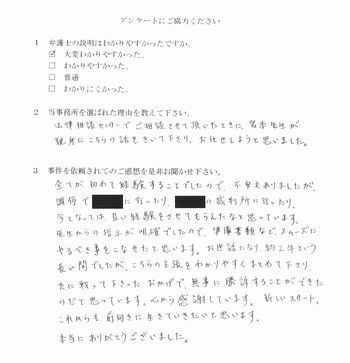 アンケートにご協力ください
1 弁護士の説明はわかりやすかったですか。
☑ 大変わかりやすかった。
□ わかりやすかった。
□ 普通
□ わかりにくかった。
2 当事務所を選ばれた理由を教えて下さい。
法律相談センターでご相談させて頂いたときに、宮本先生が
親身にこちらの話をきいて下さり、お任せしようと思いました。
3 事件を依頼されてのご感想を是非お聞かせ下さい。
全てが初めて経験することでしたので、不安もありましたが、
調停で に行ったり、 の裁判所に行ったり、
今となっては良い経験をさせてもらえたなと思っています。
先生からの指示が明確でしたので、準備書類など、スムーズに
やるべき事をこなせたと思います。お世話になり、約2年という
長い間でしたが、こちらの主張をわかりやすくまとめて下さり、
共に戦って下さった おかげで、無事に勝訴することができた
のだと思っています。心から感謝しています。 新しいスタート、
これからも前向きに生きていきたいと思います。
本当にありがとうございました。